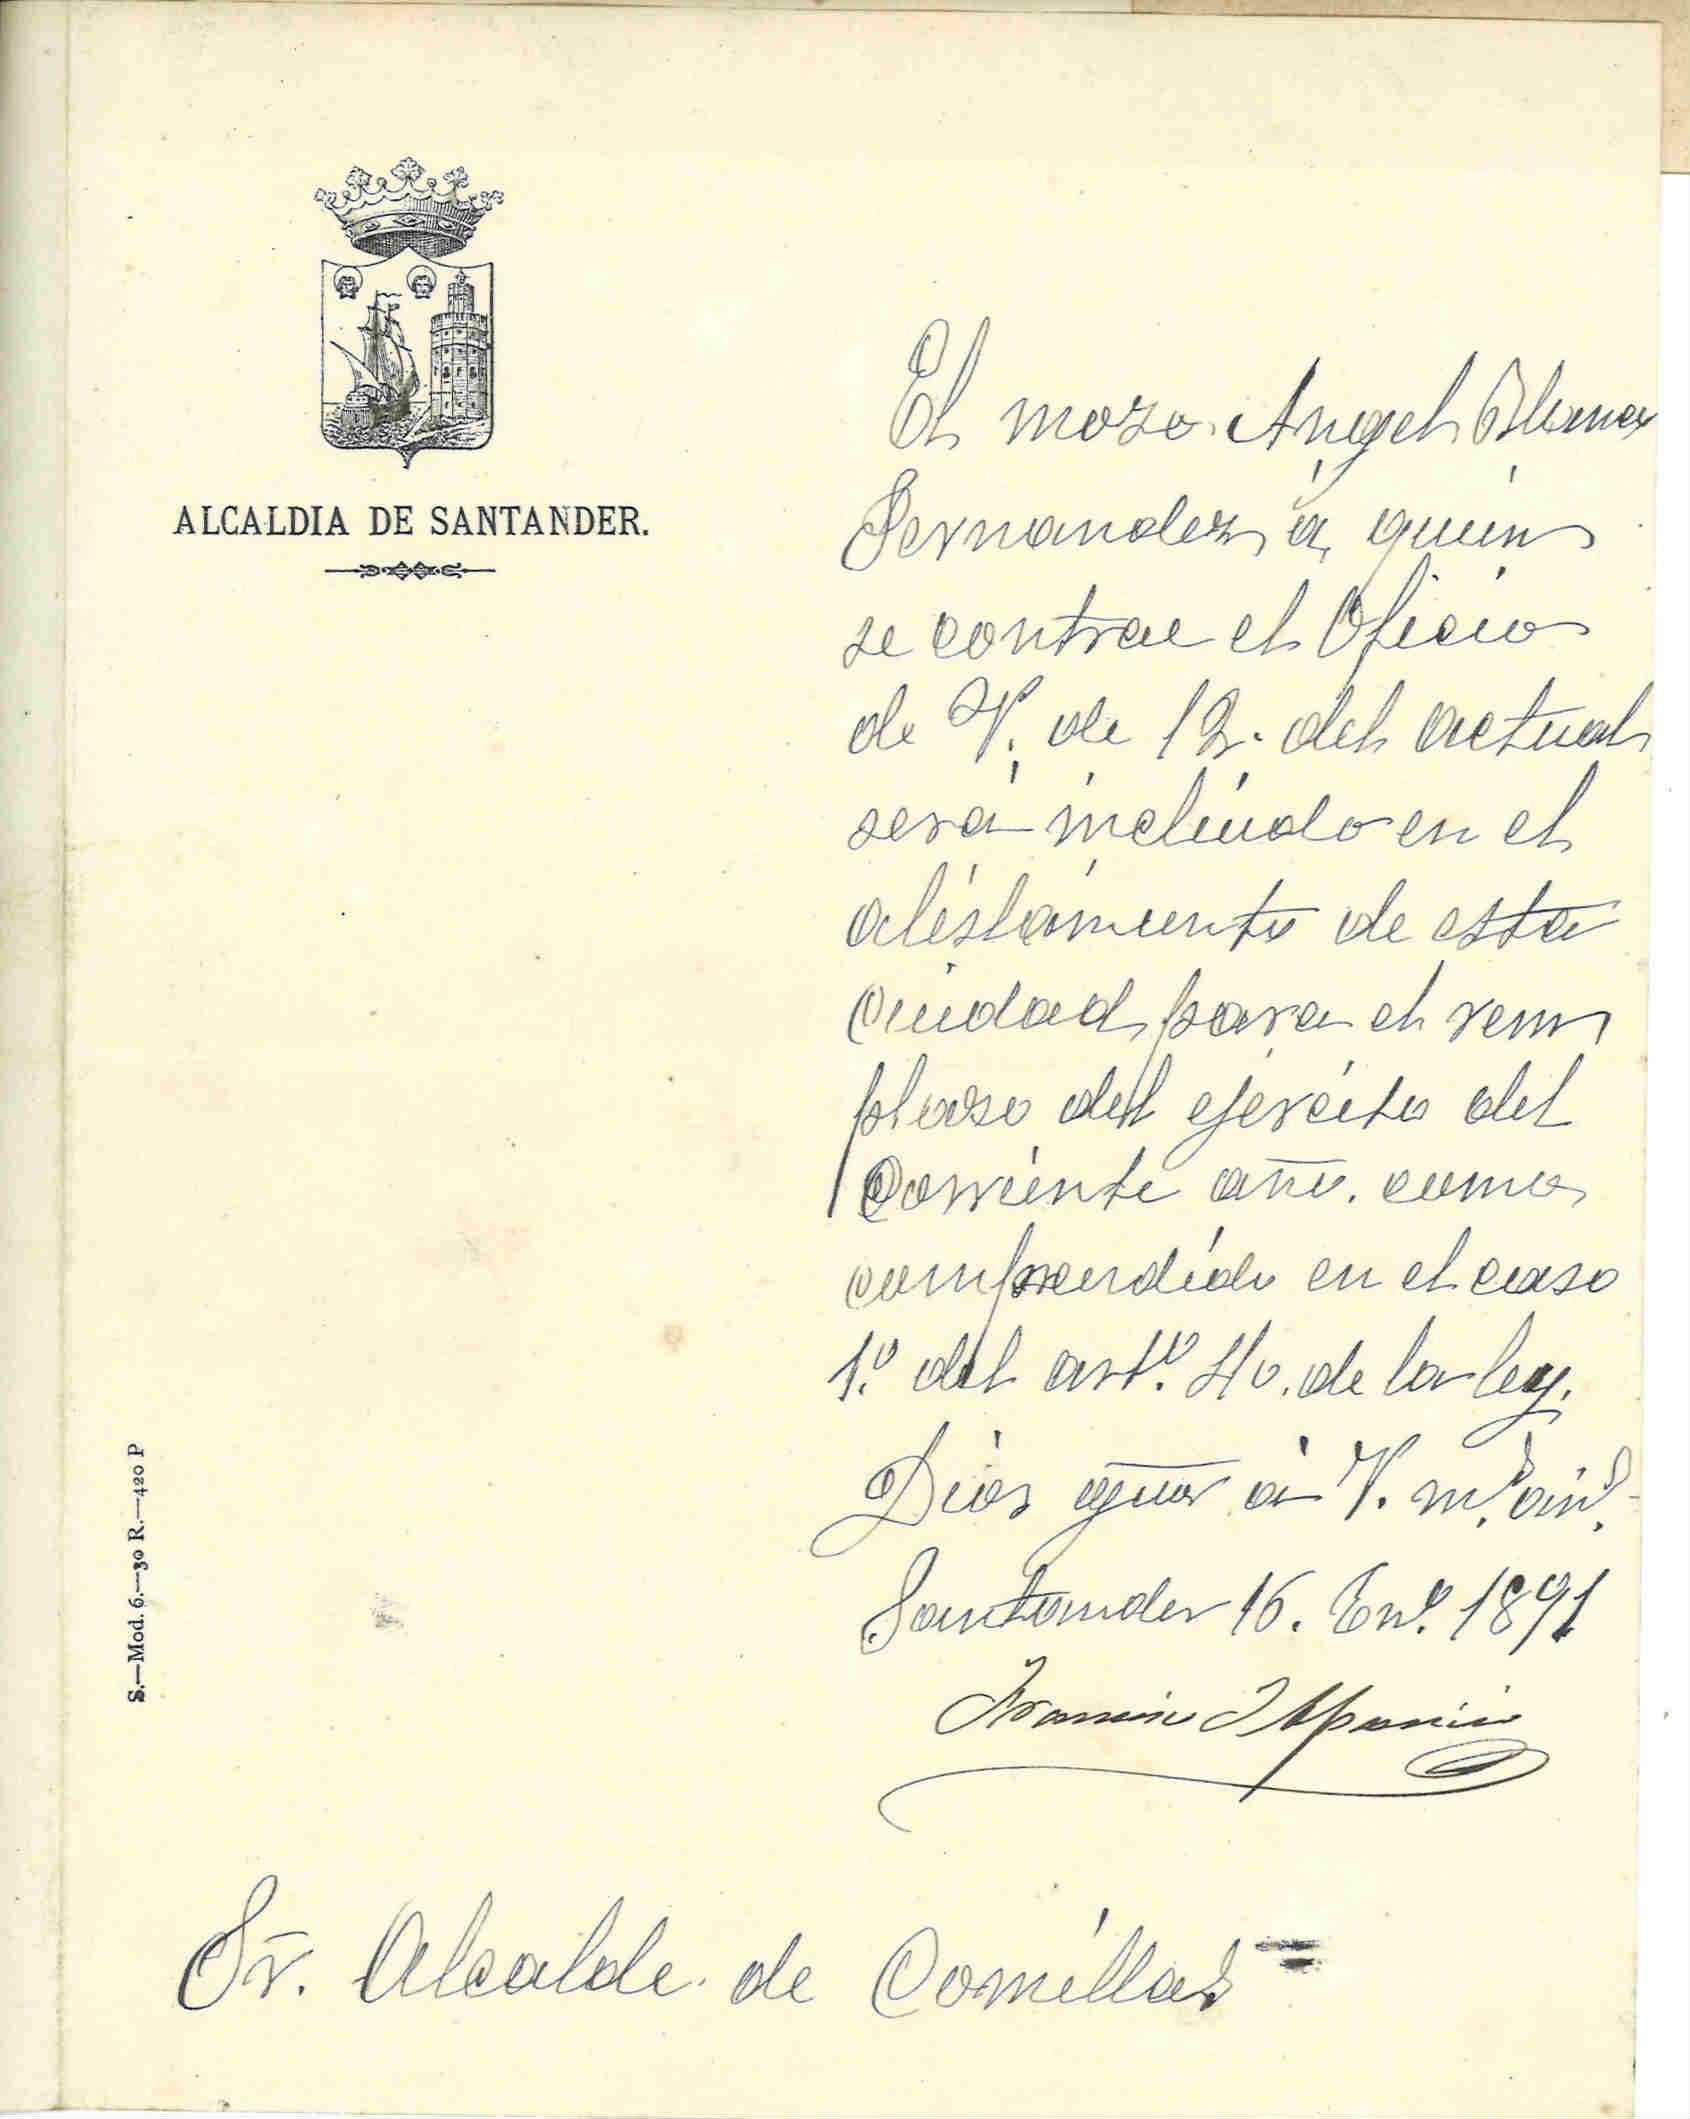 ALCALDIA DE SANTANDER.
El mozo Angel
Fernandez á quien
se contrae el Oficio
de V. de 12. del actual
será incluido en el
alistamiento de esta
Ciudad para el reem
plazo del ejército del
Corriente año. como
comprendido en el caso
1.º del artº. 40. de la ley.
Dios gue á V. mˢ. añˢ.
Santander 16. Enº. 1891
S.—Mod. 6.—30 R.—420 P
Sr. Alcalde de Comillas